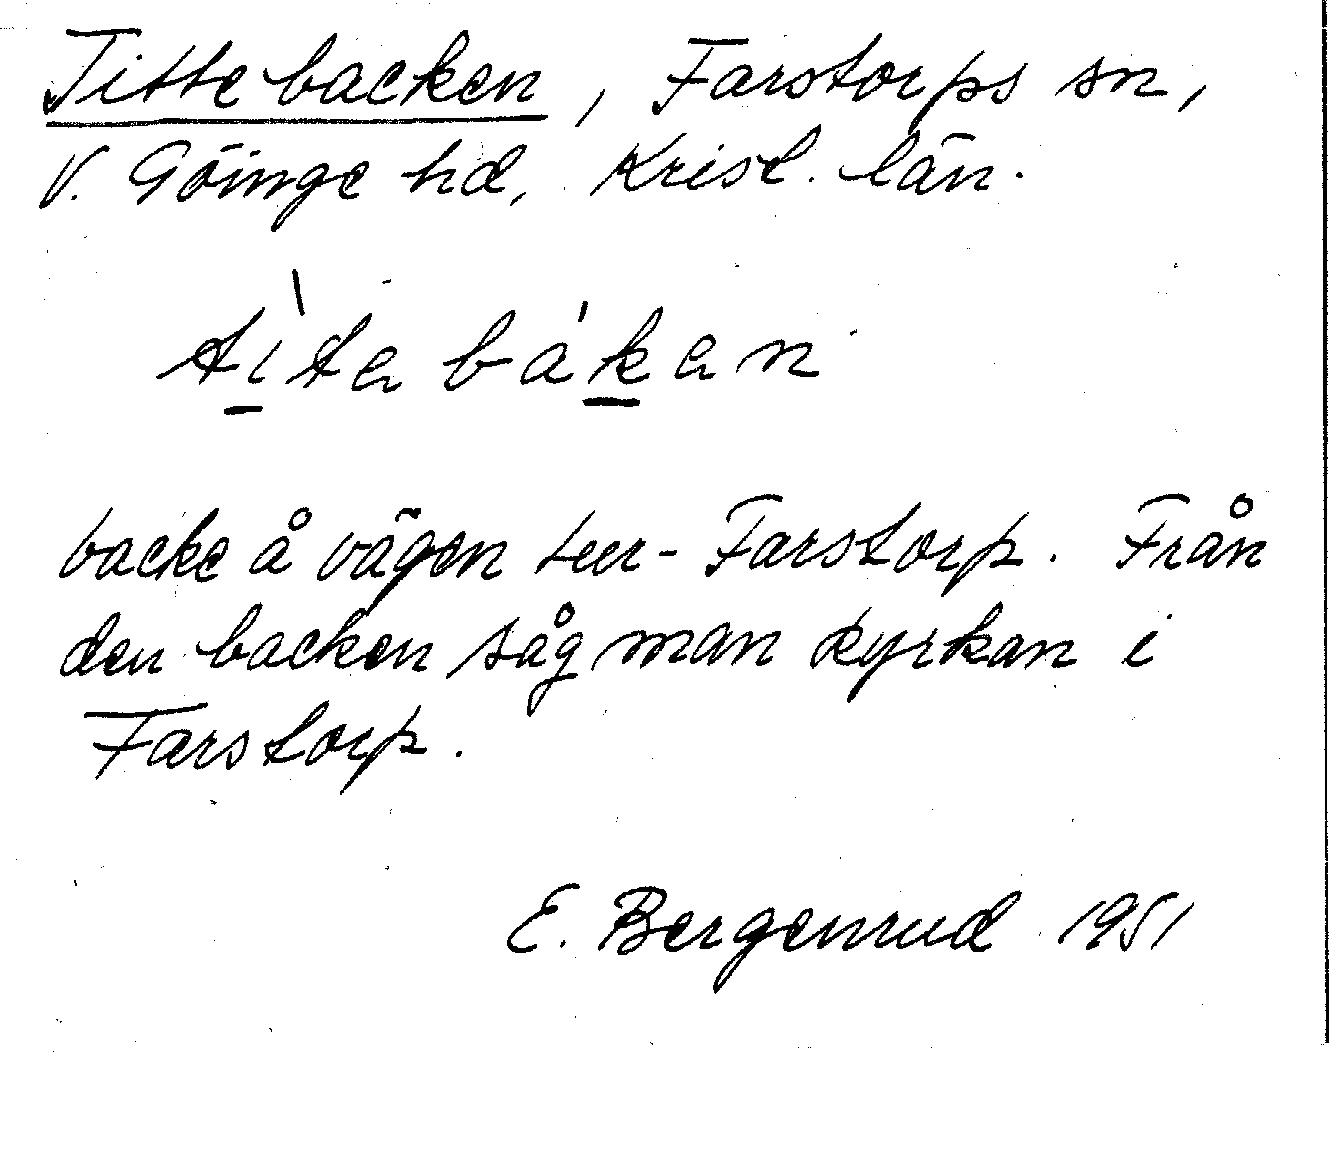 Tittebacken, Farstorps sn,
V. Göinge hd, Krist. län.
tìtabákan
backe å vägen Farstorp. Från
den backen såg man kyrkan i
Farstorp.
E. Bergenrud 1951